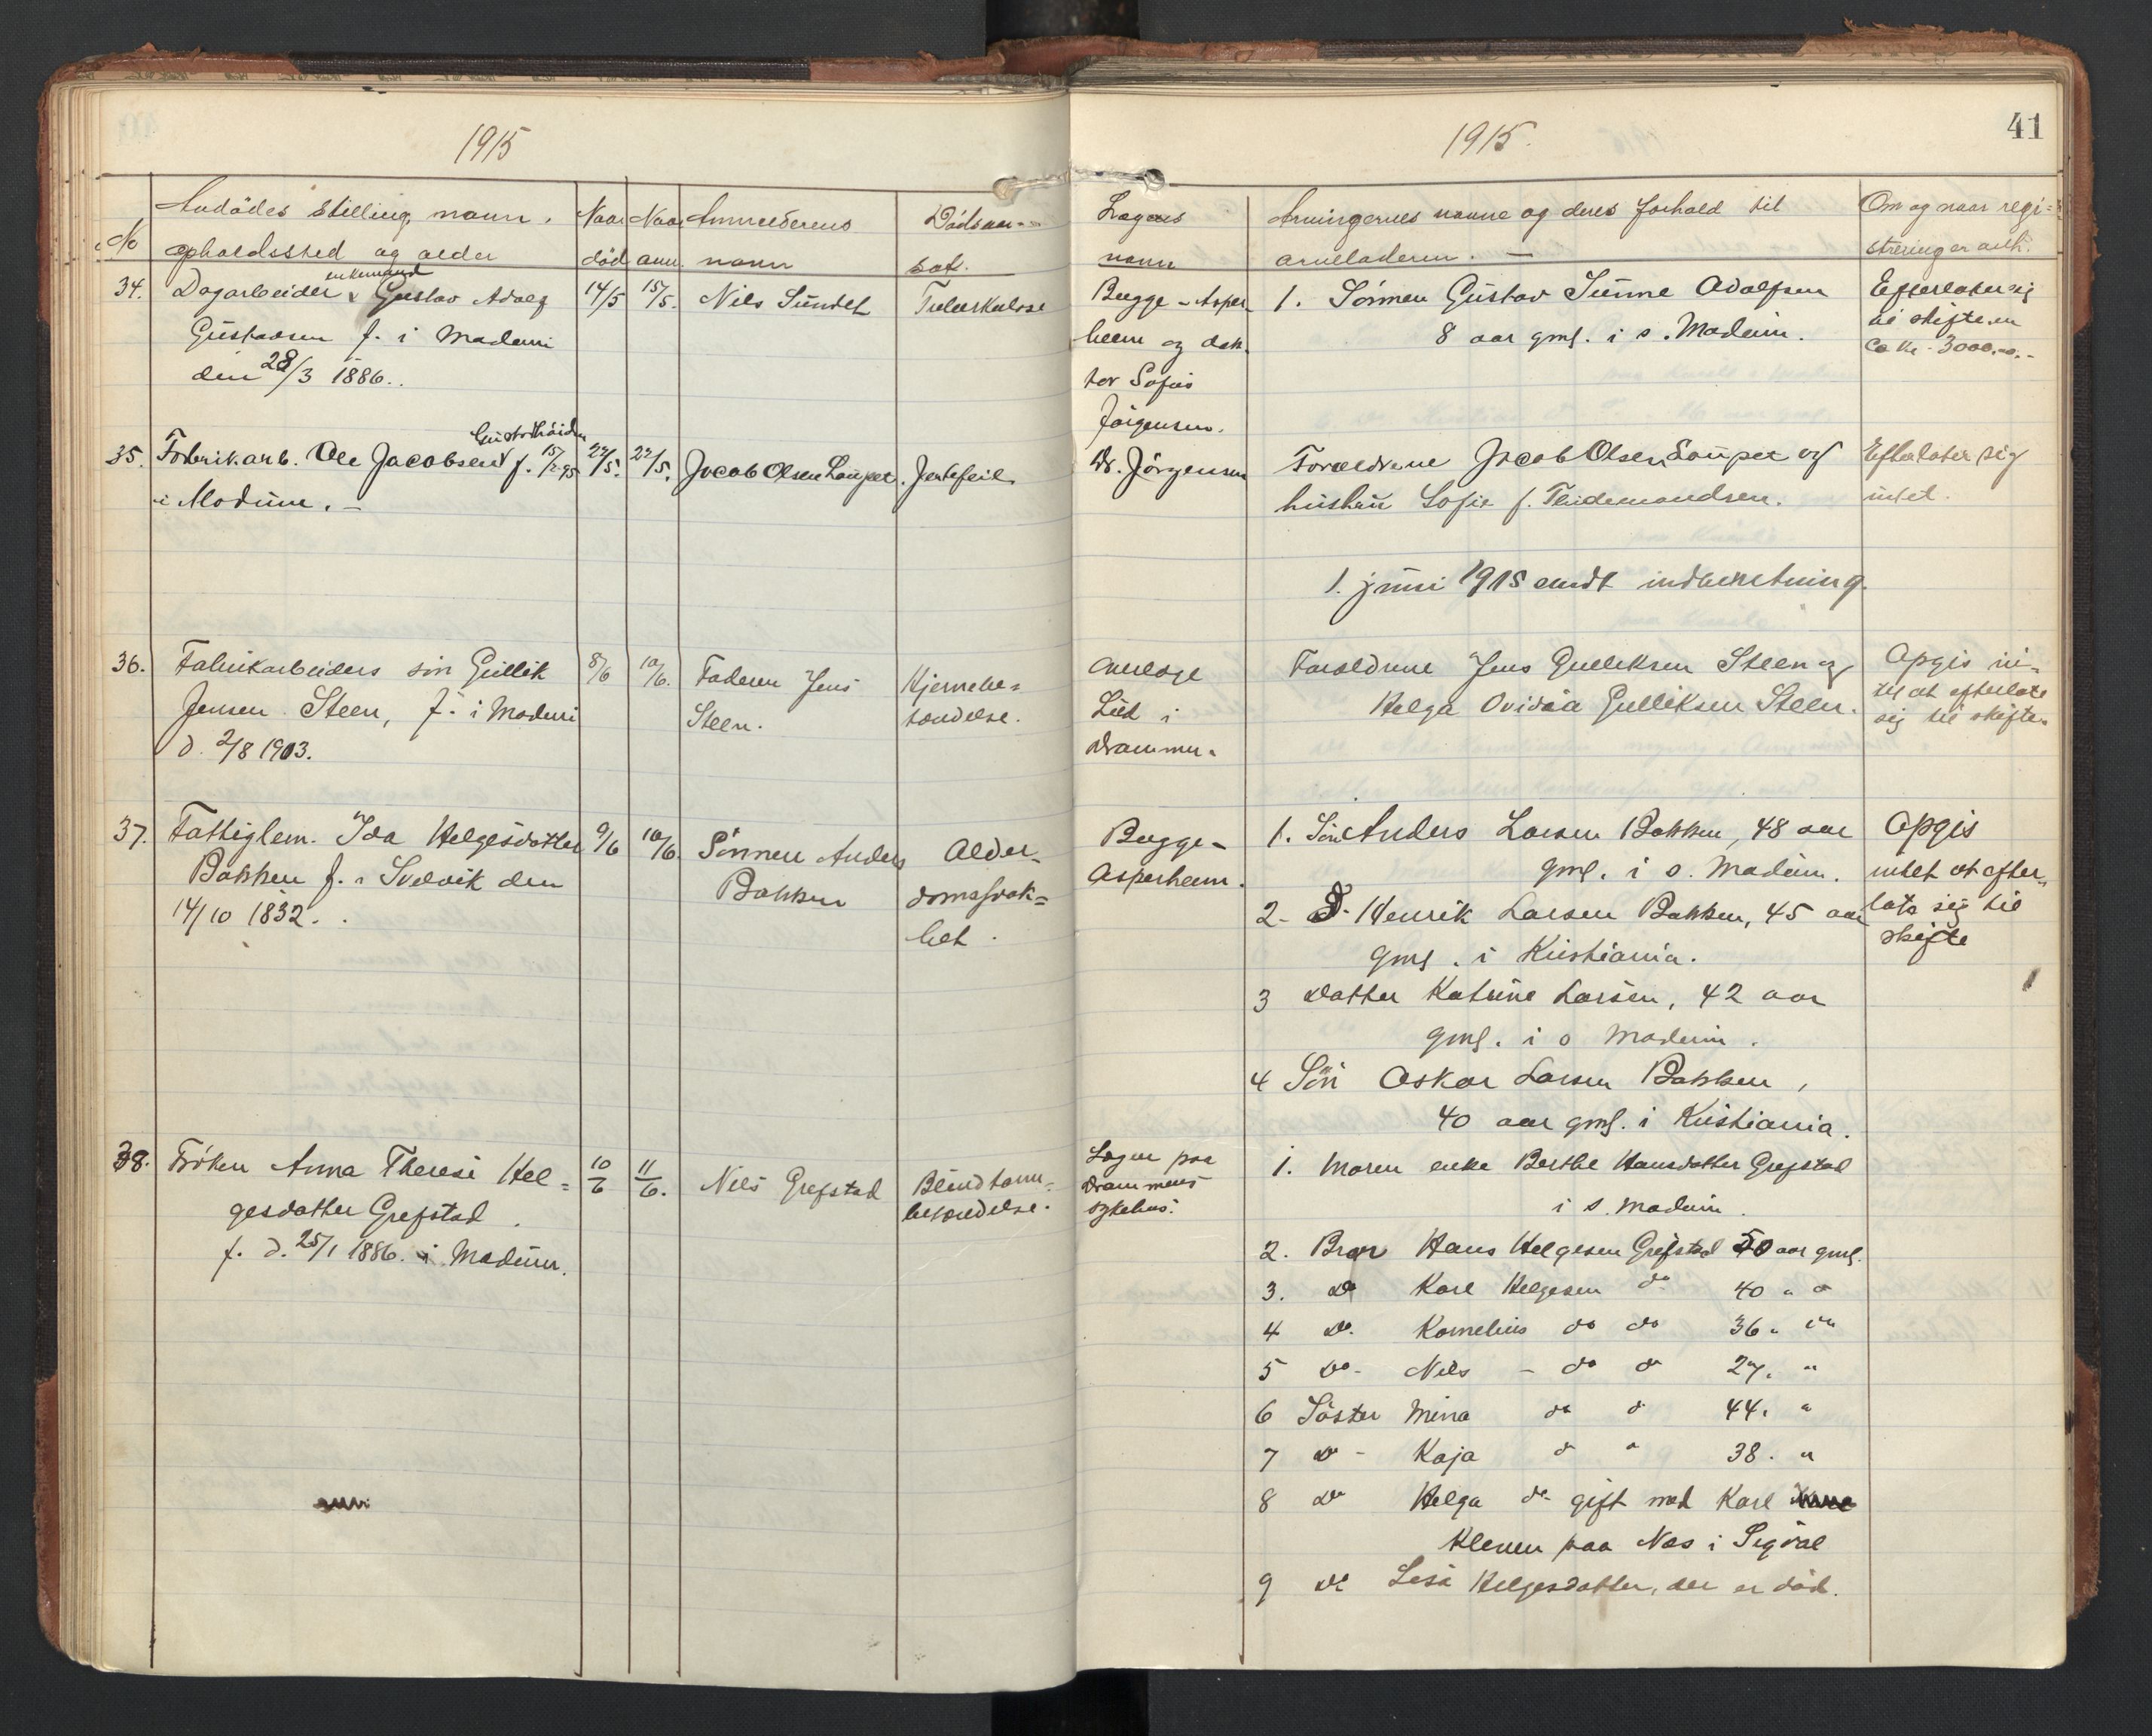 1915
No
Avdödes stilling, navn,
opholdssted og alder
Naar
död
Naar
anm.
Anmelderens
navn
Dödsaar-
sak.
34.
Dagarbeider & enkemand Gustav Adolf
Gustavsen f. i Modum
den 28/3 1886.
14/5
15/5.
Nils Sundet
Tuberkulose
35.
Fabrikarb. Ole Jacobsen Gustadhöiden f. 15/2 95
i Modum. -
22/5.
22/5.
Jacob Olsen Loupet.
Jertefeil
36.
Fabrikarbeiders sön Gullik
Jensen Steen, f. i Modum
d. 2/8 1903.
8/6
10/6.
Faderen Jens
Steen.
Hjernebe-
tændelse.
37.
Fattiglem. Ida Helgesdatter
Bakken f. i Svelvik den
14/10 1832.
9/6
10/6.
Sönnen Anders
Bakken
Alder-
domssvak-
het.
38.
Fröken Anna Therese Hel-
gesdatter Grefstad
f. d. 25/1 1886. i Modum.
10/6
11/6.
Nils Grefstad
Blindtarm-
betændelse.
1915.
41
Lægens
navn
Arvingernes navne og deres forhold til
arveladeren. -
Om og naar regi-
strering er anh.
Bugge-Asper-
heim og dok-
tor Sofus
Jörgensen.
1. Sönnen Gustav Sunne Adolfsen
8 aar gml. i s. Modum.
Efterlater sig
til skifte en
ca kr. 3000,-
Dr. Jörgensen
Forældrene Jacob Olsen Loupet og
hustru Sofie f. Thidemandsen.
Efterlater sig
intet.
1. juni 1915 sendt indberetning.
Overlæge
Lied i
Drammen.
Forældrene Jens Gulliksen Steen og
Helga Ovidia Gulliksen Steen.
Opgis in-
tet at efterlate
sig til skifte.
Bugge-
Asperheim.
1. Sön Anders Larsen Bakken, 48 aar
gml. i s. Modum.
2 - D. Henrik Larsen Bakken, 45 aar
gml. i Kristiania.
3 Datter Katrine Larsen, 42 aar
gml. i s Modum.
4 Sön Oskar Larsen Bakken,
40 aar gml. i Kristiania.
Opgis
intet at efter-
late sig til
skifte
Lægen paa
Drammens
sykehus.
1. Moren enke Berthe Hansdatter Grefstad
i s. Modum.
2. Bror Hans Helgesen Grefstad 50 aar gml.
3. Do Karl Helgesen do 40 " "
4 Do. Kornelius do do 36 " "
5 Do - Nils - do do 27. "
6 Söster Mina do do 44. "
7 Do - Kaja do " 38. "
8 Do Helga do gift med Karl
Kleven paa Nes i Sigdal
9 Do Lisa Helgesdatter, der er död.